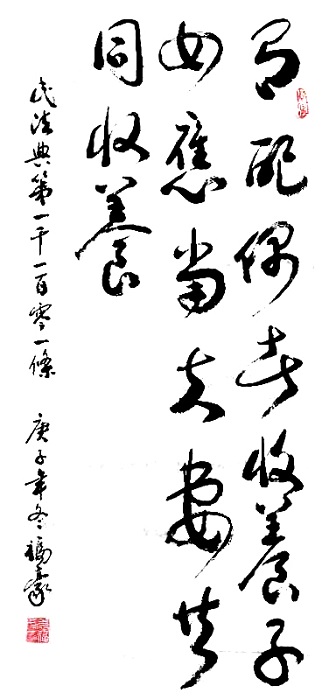 有配偶者收養子
女應當夫妻共
同收養
民法典第一千一百零一條 庚子年冬 福豪